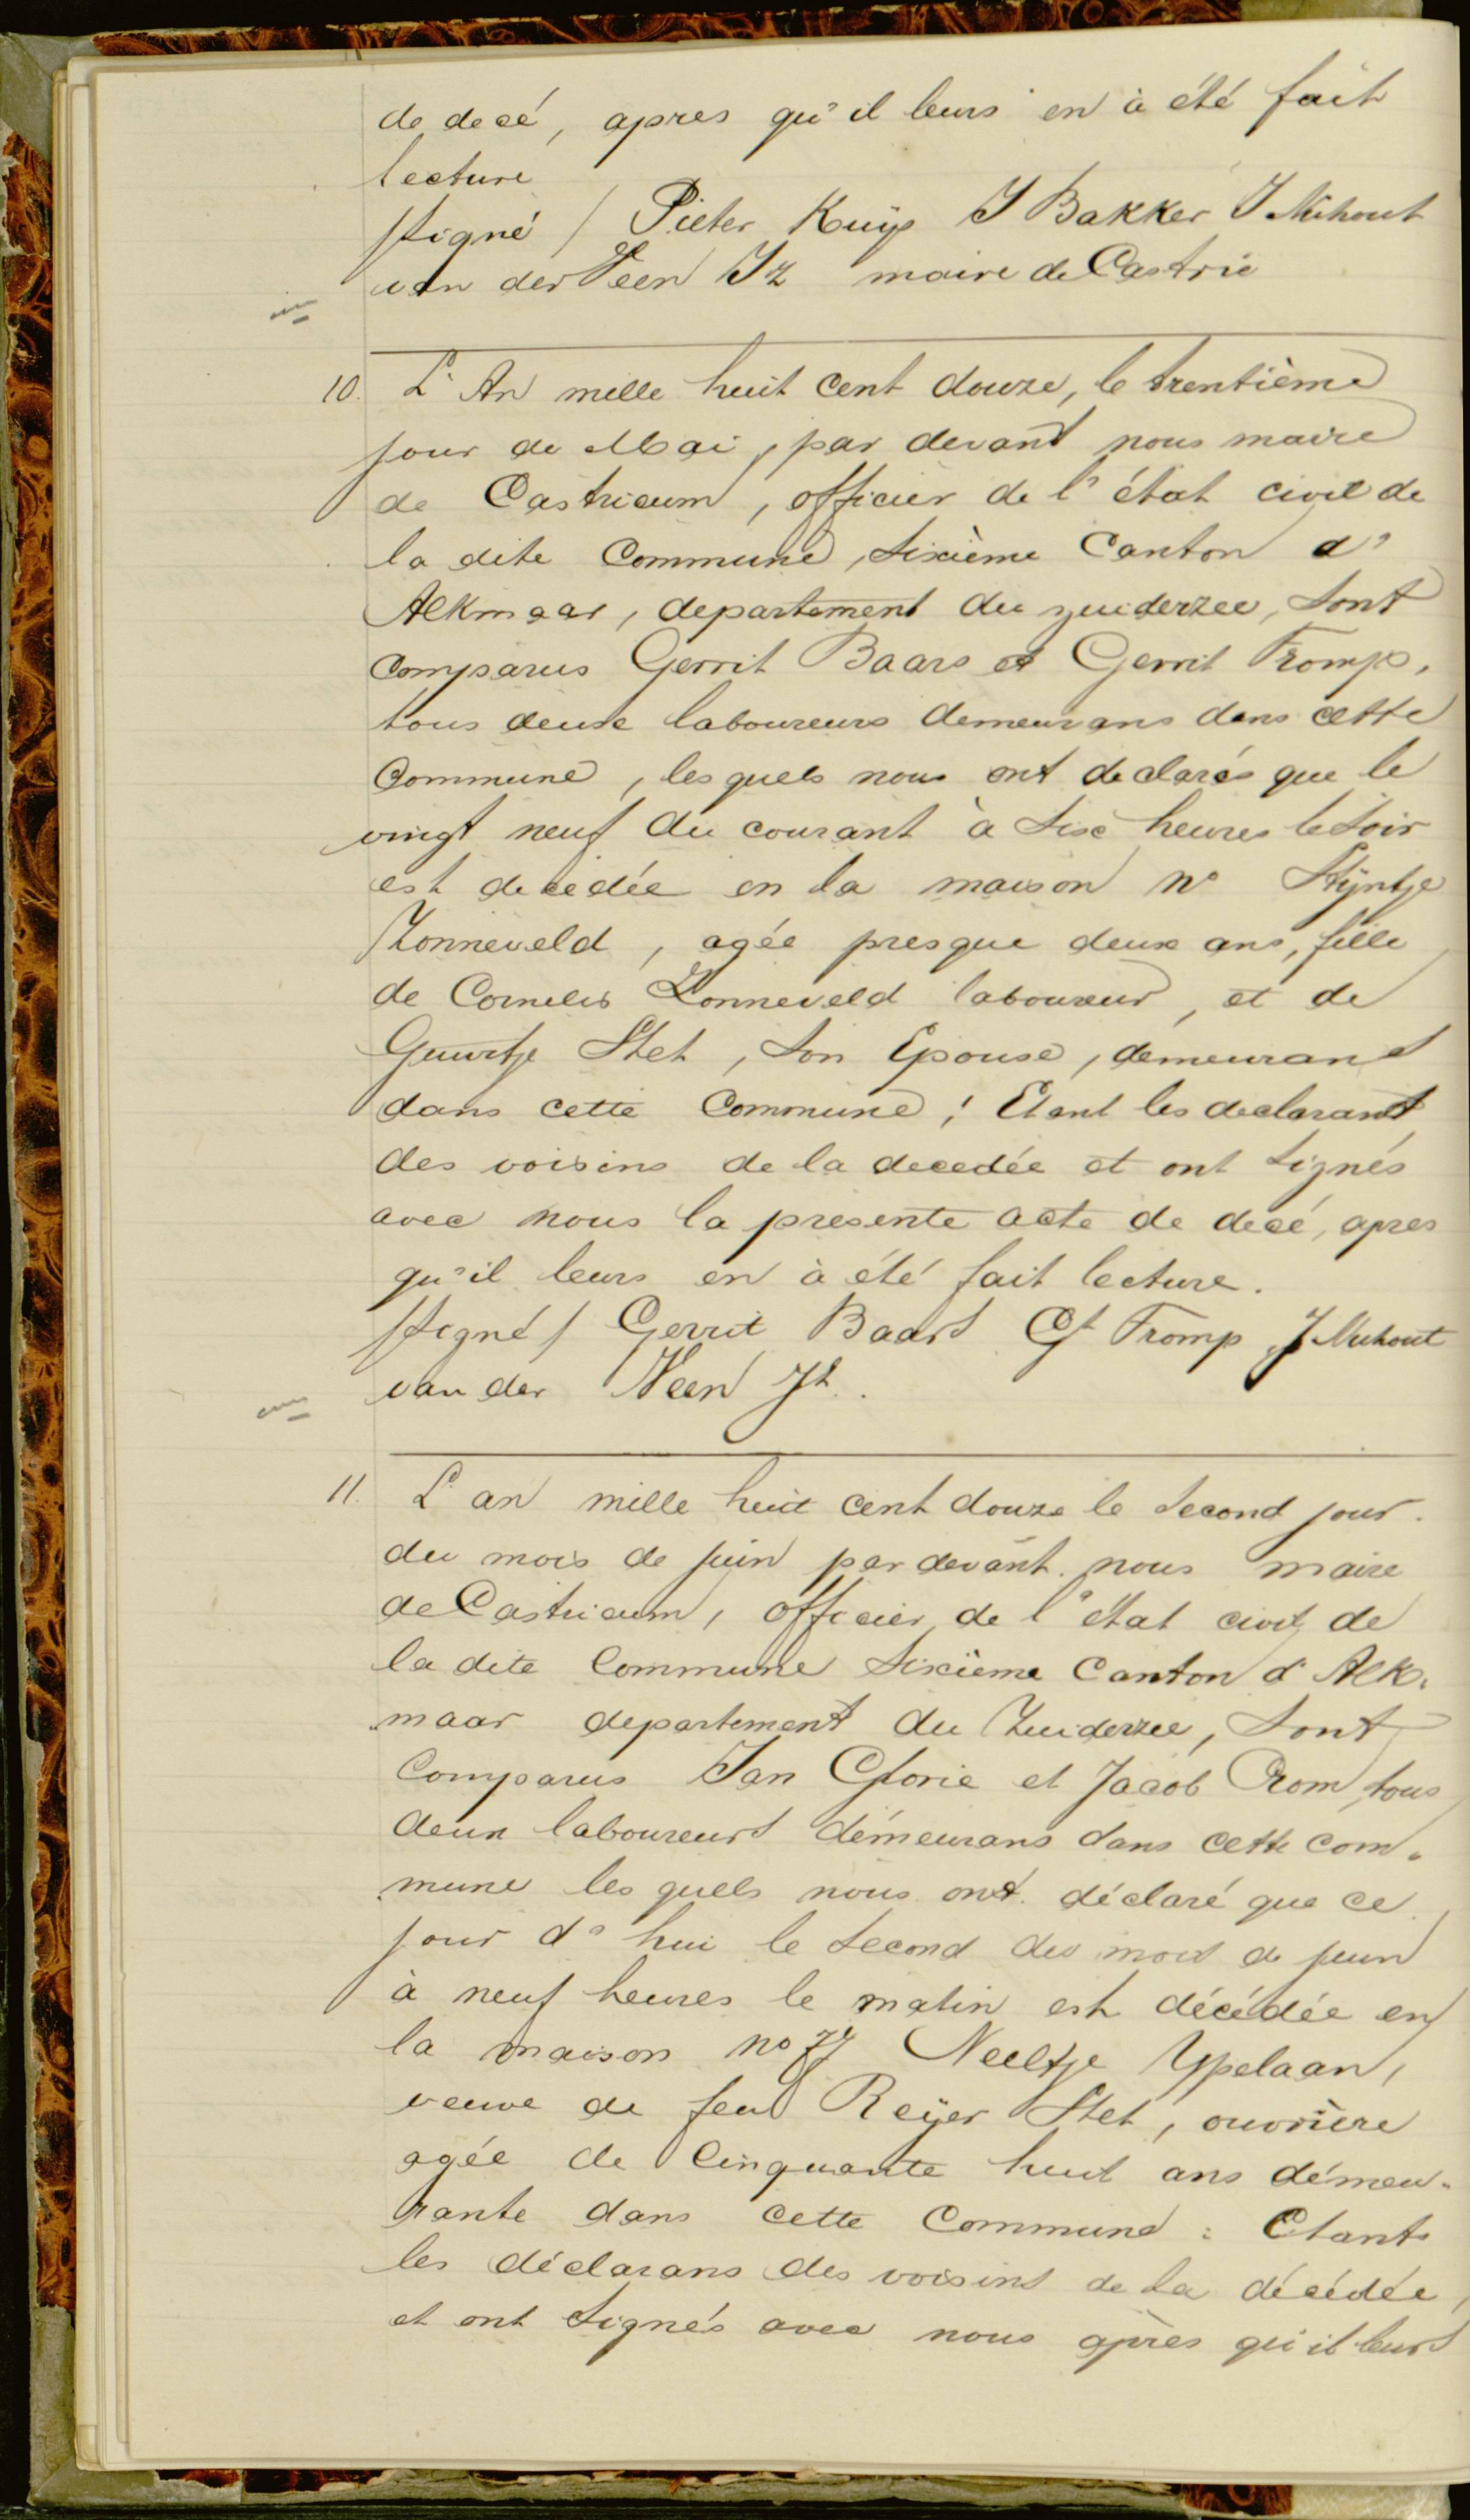 de decé, apres qu'il leurs en à été fait
lecture
/signé/ Pieter Kuijs J Bakker J Nuhout
van der Veen Jz maire de Castric
10. L'An mille huit cent douze, le trentième
jour de Mai, par devant nous maire
de Castricum, officier de l'état civil de
la dite Commune, sixième Canton d'
Alkmaar, departement du zuiderzee, sont
comparus Gerrit Baars et Gerrit Tromp,
tous deux laboureurs demeurans dans cette
Commune, les quels nous ont declarés que le
vingt neuf du courant à sise heures le soir
est decedée en la maison no Stijntje
Zonneveld, agée presque deux ans, fille
de Cornelis Zonneveld laboureur, et de
Guurtje Stet, son Epouse, demeurant
dans cette Commune; Etant les declarant
des voisins de la decedée et ont signés
avec nous la presente acte de decé, apres
qu'il leurs en à été fait lecture.
/signé/ Gerrit Baars G Tromp J Nuhout
van der Veen Jz.
11. L'an mille huit cent douze le second jour
du mois de juin par devant nous maire
de Castricum, officier de l'état civil de
la dite Commune sixième Canton d'Alk„
„maar departement du Zuiderzee, sont
Comparus Jan Glorie et Jacob Crom tous
deux laboureurs démeurans dans cette com„
„mune les quels nous ont déclaré que ce
jour d'hui le second du mois de juin
à neuf heures le matin est décédée en
la maison no 77 Neeltje Ypelaan,
veuve de feu Reijer Stet, ouvrière
agée de Cinquante huit ans démeu„
rante dans cette Commune: Etants
les déclarans des voisins de la décédée,
et ont signés avec nous après qu'il leurs